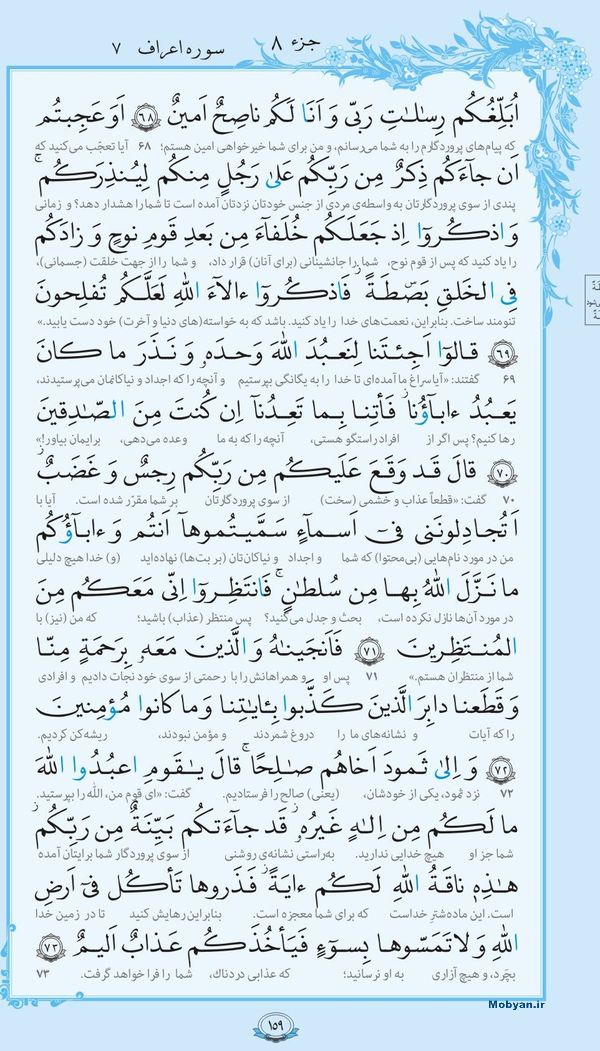 جزء ۸
سوره اعراف ۷
اُبَلِّغُكُم رِسٰلٰتِ رَبّى وَ اَنَا لَكُم ناصِحٌ اَمينٌ ﴿۶۸﴾ اَوَ عَجِبتُم
که پیام‌های پروردگارم را به شما می‌رسانم، و من برای شما خیرخواهی امین هستم؛ ۶۸ آیا تعجّب می‌کنید که
اَن جآءَكُم ذِكرٌ مِن رَبِّكُم عَلىٰ رَجُلٍ مِنكُم لِيُنذِرَكُم ۚ
پندی از سوی پروردگارتان به واسطه‌ی مردی از جنس خودتان نزدتان آمده است تا شما را هشدار دهد؟ و زمانی
وَاذكُروٓا اِذ جَعَلَكُم خُلَفآءَ مِن بَعدِ قَومِ نوحٍ وَ زادَكُم
را یاد کنید که پس از قوم نوح، شما را جانشینانی (برای آنان) قرار داد، و شما را از جهت خلقت (جسمانی)،
فِى الخَلقِ بَصۜطَةً ۖ فَاذكُروٓا ءالآءَ اللهِ لَعَلَّكُم تُفلِحونَ
تنومند ساخت. بنابراین، نعمت‌های خدا را یاد کنید. باشد که به خواسته(های دنیا و آخرت) خود دست یابید.»
﴿۶۹﴾ قالوٓا اَجِئتَنا لِنَعبُدَ اللهَ وَحدَهُ وَ نَذَرَ ما كانَ
۶۹ گفتند: «آیا سراغ ما آمده‌ای تا خدا را به یگانگی بپرستیم و آنچه را که اجداد و نیاکانمان می‌پرستیدند،
يَعبُدُ ءابآؤُنا ۖ فَأتِنا بِما تَعِدُنآ اِن كُنتَ مِنَ الصّٰدِقينَ
رها کنیم؟ پس اگر از افراد راستگو هستی، آنچه را که به ما وعده می‌دهی، برایمان بیاور!»
﴿۷۰﴾ قالَ قَد وَقَعَ عَلَيكُم مِن رَبِّكُم رِجسٌ وَ غَضَبٌ ۖ
۷۰ گفت: «قطعاً عذاب و خشمی (سخت) از سوی پروردگارتان بر شما مقرّر شده است. آیا با
اَتُجادِلونَنى فىٓ اَسمآءٍ سَمَّيتُموهآ اَنتُم وَ ءابآؤُكُم
من در مورد نام‌هایی (بی‌محتوا) که شما و اجداد و نیاکان‌تان (بر بت‌ها) نهاده‌اید (و) خدا هیچ دلیلی
ما نَزَّلَ اللهُ بِها مِن سُلطٰنٍ ۚ فَانتَظِروٓا اِنّى مَعَكُم مِنَ
در مورد آن‌ها نازل نکرده است، بحث و جدل می‌کنید؟ پس منتظر (عذاب) باشید؛ که من (نیز) با
المُنتَظِرينَ ﴿۷۱﴾ فَاَنجَينٰهُ وَ الَّذينَ مَعَهُ بِرَحمَةٍ مِنّا
شما از منتظران هستم.» ۷۱ پس او و همراهانش را با رحمتی از سوی خود نجات دادیم و افرادی
وَ قَطَعنا دابِرَ الَّذينَ كَذَّبوا بِـٔايٰتِنا وَ ما كانوا مُؤمِنينَ
را که آیات و نشانه‌های ما را دروغ شمردند و مؤمن نبودند، ریشه‌کن کردیم.
﴿۷۲﴾ وَ اِلىٰ ثَمودَ اَخاهُم صٰلِحًا ۚ قالَ يٰقَومِ اعبُدُوا اللهَ
۷۲ نزد ثمود، یکی از خودشان، (یعنی) صالح را فرستادیم. گفت: «ای قوم من، الله را بپرستید.
ما لَكُم مِن اِلٰهٍ غَيرُهُ ۖ قَد جآءَتكُم بَيِّنَةٌ مِن رَبِّكُم ۖ
شما جز او هیچ خدایی ندارید. به‌راستی نشانه‌ی روشنی از سوی پروردگار شما برایتان آمده
هٰذِهِ ناقَةُ اللهِ لَكُم ءايَةً ۖ فَذَروها تَأكُل فىٓ اَرضِ
است. این ماده‌شترِ خداست که برای شما معجزه است. بنابراین رهایش کنید تا در زمین خدا
اللهِ وَ لاتَمَسّوها بِسوٓءٍ فَيَأخُذَكُم عَذابٌ اَليمٌ ﴿۷۳﴾
بچَرد، و هیچ آزاری به او نرسانید؛ که عذابی دردناك، شما را فرا خواهد گرفت. ۷۳
۱۵۹
Mobyan.ir